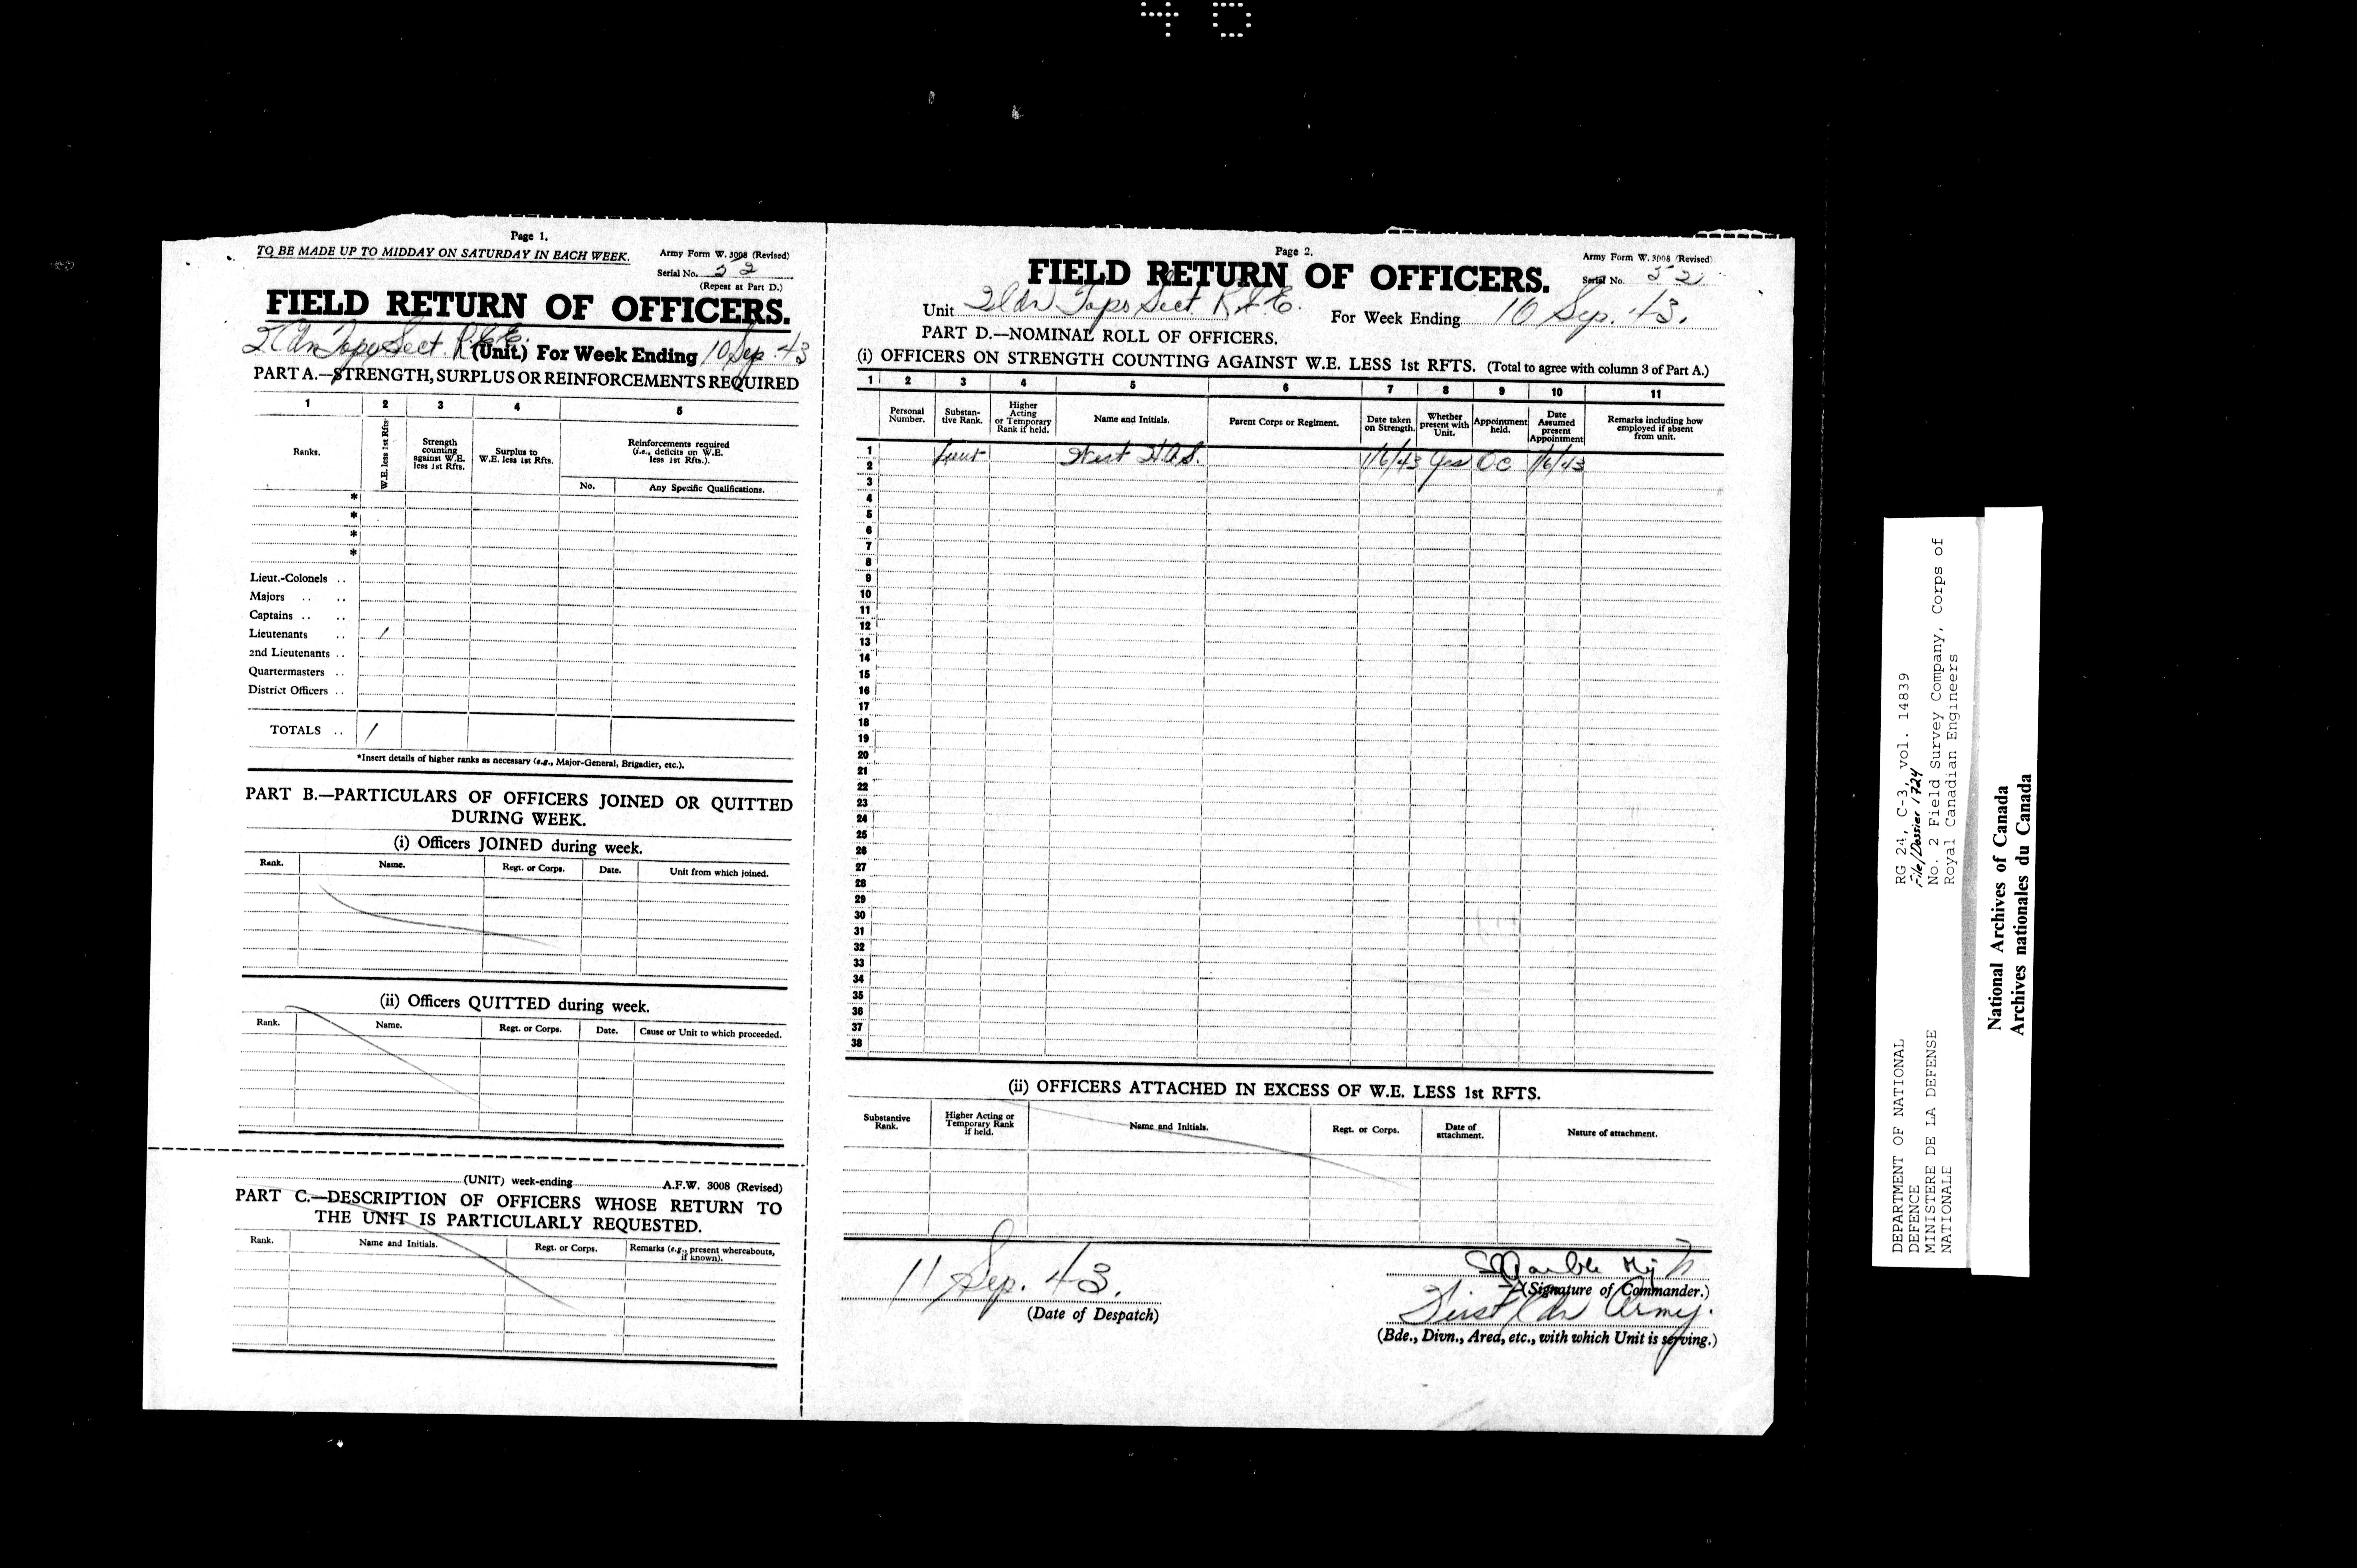 40
Page 1.
TO BE MADE UP TO MIDDAY ON SATURDAY IN EACH WEEK.
Army Form W. 3008 (Revised)
Serial No. 52
(Repeat at Part D.)
FIELD RETURN OF OFFICERS.
2 Cdn Topo Sect. R.C.E. (Unit.) For Week Ending 10 Sep. 43
PART A.—STRENGTH, SURPLUS OR REINFORCEMENTS REQUIRED
1 2 3 4 5
Ranks. W.E. less 1st Rfts. Strength counting against W.E. less 1st Rfts. Surplus to W.E. less 1st Rfts. Reinforcements required (i.e., deficits on W.E. less 1st Rfts.).
No. Any Specific Qualifications.
*
*
*
*
Lieut.-Colonels ..
Majors .. ..
Captains .. ..
Lieutenants .. 1
2nd Lieutenants ..
Quartermasters ..
District Officers ..
TOTALS .. 1
*Insert details of higher ranks as necessary (e.g., Major-General, Brigadier, etc.).
PART B.—PARTICULARS OF OFFICERS JOINED OR QUITTED
DURING WEEK.
(i) Officers JOINED during week.
Rank. Name. Regt. or Corps. Date. Unit from which joined.
(ii) Officers QUITTED during week.
Rank. Name. Regt. or Corps. Date. Cause or Unit to which proceeded.
(UNIT) week-ending A.F.W. 3008 (Revised)
PART C.—DESCRIPTION OF OFFICERS WHOSE RETURN TO
THE UNIT IS PARTICULARLY REQUESTED.
Rank. Name and Initials. Regt. or Corps. Remarks (e.g., present whereabouts, if known).
Page 2.
Army Form W. 3008 (Revised)
Serial No. 52
FIELD RETURN OF OFFICERS.
Unit 2 Cdn Topo Sect. R.C.E. For Week Ending 10 Sep. 43.
PART D.—NOMINAL ROLL OF OFFICERS.
(i) OFFICERS ON STRENGTH COUNTING AGAINST W.E. LESS 1st RFTS. (Total to agree with column 3 of Part A.)
1 2 3 4 5 6 7 8 9 10 11
Personal Number. Substantive Rank. Higher Acting or Temporary Rank if held. Name and Initials. Parent Corps or Regiment. Date taken on Strength. Whether present with Unit. Appointment held. Date Assumed present Appointment Remarks including how employed if absent from unit.
1 Lieut West H.A.S. 1/6/43 Yes OC 1/6/43
2
3
4
5
6
7
8
9
10
11
12
13
14
15
16
17
18
19
20
21
22
23
24
25
26
27
28
29
30
31
32
33
34
35
36
37
38
(ii) OFFICERS ATTACHED IN EXCESS OF W.E. LESS 1st RFTS.
Substantive Rank. Higher Acting or Temporary Rank if held. Name and Initials. Regt. or Corps. Date of attachment. Nature of attachment.
11 Sep. 43.
(Date of Despatch)
Maj
(Signature of Commander.)
First Cdn Army.
(Bde., Divn., Area, etc., with which Unit is serving.)
DEPARTMENT OF NATIONAL
DEFENCE
MINISTERE DE LA DEFENSE
NATIONALE
RG 24, C-3, vol. 14839
File/Dossier 1724
No. 2 Field Survey Company, Corps of
Royal Canadian Engineers
National Archives of Canada
Archives nationales du Canada